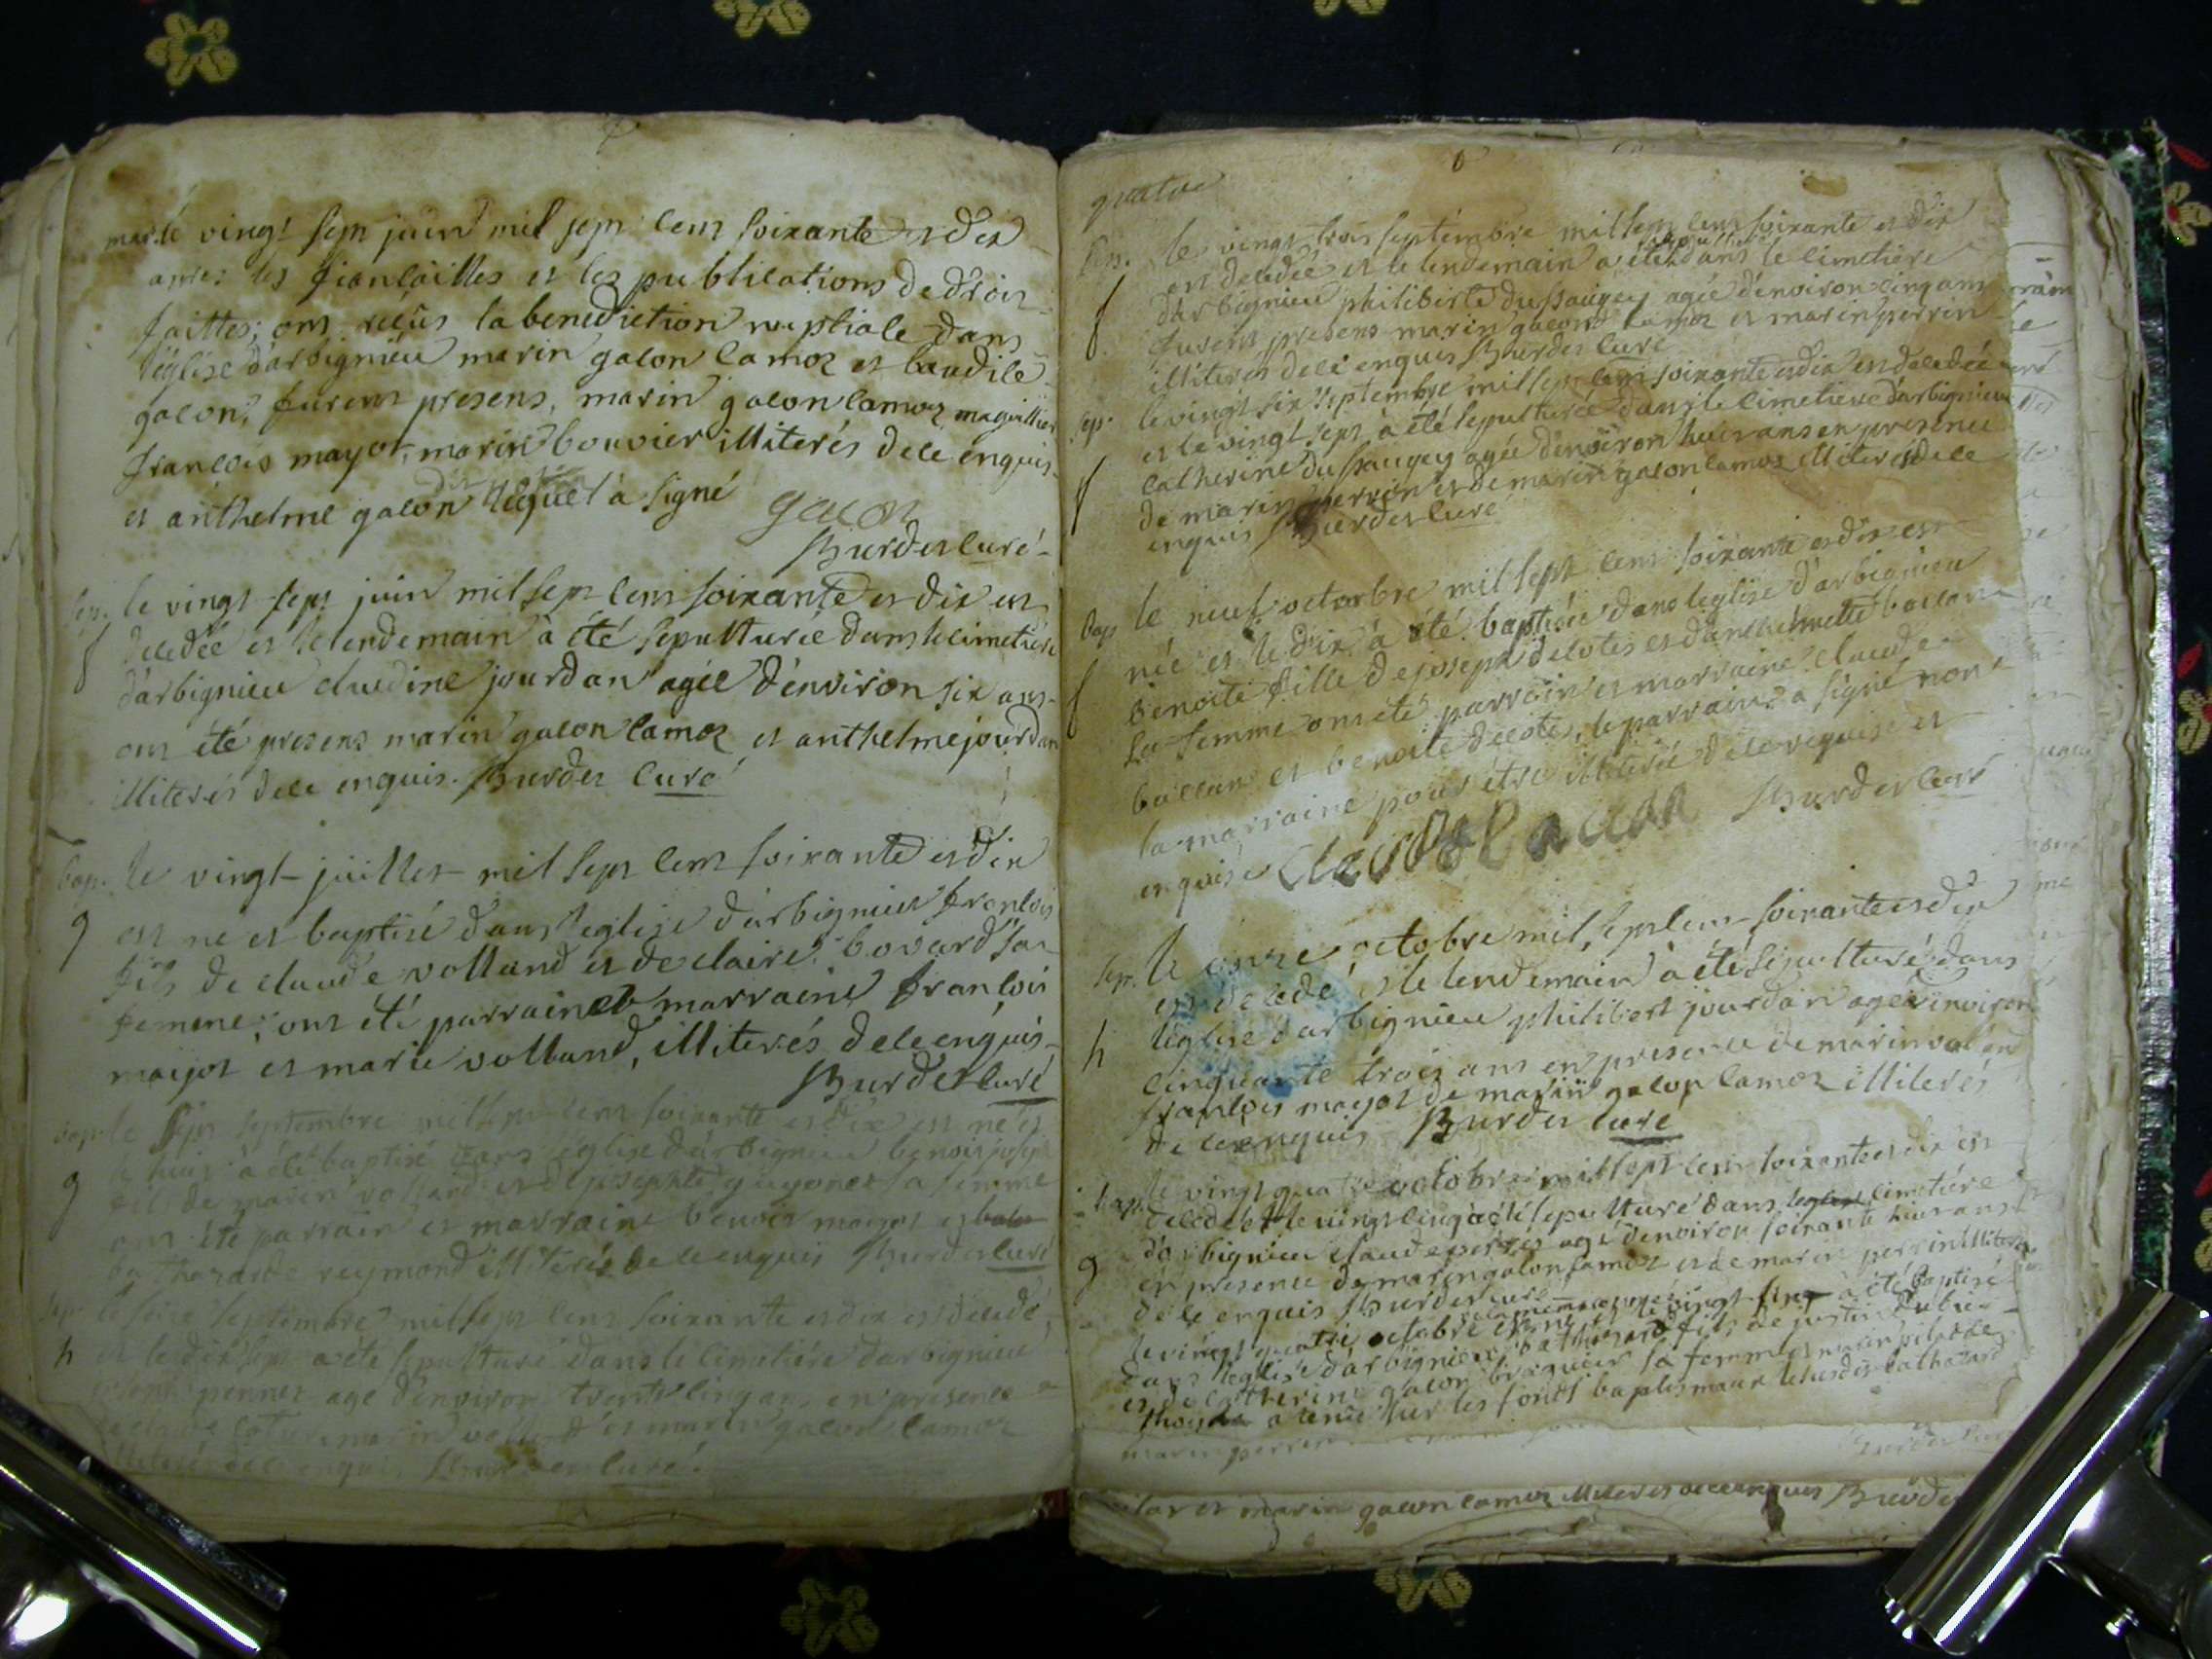 mar. le vingt sept juin mil sept cent soixante et dix
apres les fiancailles et les publications de droit
faittes; ont reçus la benediction nuptiale dans
l'église d'arbignieu marin galon lamoz et
galon, furent presens, marin galon lamoz
françois mayot, marin bouvier illiterés de ce enquis
et anthelme galon lequel à signé galon
Burdet curé
sep. le vingt sept juin mil sept cent soixante et dix est
decedée et le lendemain à été sepulturée dans le cimetiere
d'arbignieu claudine jourdan agée d'environ six ans
ont été presens marin galon lamoz et anthelme jourdan
illiterés de ce enquis. Burdet curé
bap. le vingt juillet mil sept cent soixante et dix
g est ne et baptisé dans l'eglise d'arbignieu françois
fils de claude volland et de claire bovard sa
femme; ont été parrain et marraine françois
maijot et marie volland, illiterés de ce enquis
Burdet curé
bap. le sept septembre mil sept cent soixante et dix est né et
le huit à été baptisé dans l'église d'arbignieu benoit joseph
g fils de marin volland et de josephte guyonet sa femme
ont été parrain et marraine benoit mayot et
balthazarde reymond illiterés de ce enquis Burdet curé
sep. le seize septembre mil sept cent soixante et dix est decedé
h et le dix sept a été sepulturé dans le cimetiére d'arbignieu
pennet age d'environ trente cinq ans en presence
marin volland et marin galon lamoz
illiterés de ce enquis Burdet curé.
quatre
sep. le vingt trois septembre mil sept cent soixante et dix
est decedée et le lendemain a été sepulturée dans le cimetiére
f d'arbignieu philiberte du saugey agée d'environ cinq ans
furent presens marin galon lamoz et marin perrin
illiterés de ce enquis Burdet curé
sep. le vingt six septembre mil sept cent soixante et dix est decedée
et le vingt sept à été sepulturée dans le cimetiere d'arbignieu
f catherine du saugey agée d'environ huit ans en presence
de marin perrin et de marin galon lamoz illiterés de ce
enquis Burdet curé
bap le neuf octorbre mil sept cent soixante et dix est
née et le dix à été baptisée dans l'eglise d'arbignieu
f benoite fille de joseph decotes et d'anthelmette ballan
sa femme ont été parrain et marraine claude
ballan et benoite decotes, le parrain a signé non
la marraine pour être illiterée de ce requise et
enquise Burdet curé
sep. le onze octobre mil sept cent soixante et dix
est decedé et le lendemain à été sepulturé dans
h l'église d'arbignieu philibert jourdan agé d'environ
cinquante trois ans en presence de marin
françois mayot de marin galon lamoz illiterés
de ce enquis Burdet curé
le vingt quatre octobre mil sept cent soixante et dix est
decedé et le vingt cinq à été sepulturé dans l'eglise cimetiére
d'arbignieu claude agé d'environ soixante huit ans
g en presence de marin galon lamoz et de marin perrin illiterés
de ce enquis Burdet curé
le vingt quatre octobre est né et le vingt à été baptisé
dans l'église d'arbignieu balthazard fils de justin
et de catherine galon sa femme
a tenu sur les fonts baptismaux le susdit balthazard
marin perrin
et marin galon lamoz illiterés de ce enquis Burdet